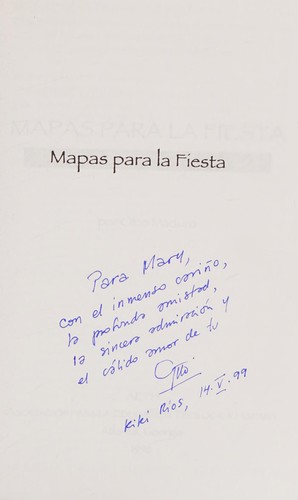 MAPAS PARA LA FIESTA
Mapas para la Fiesta
Para Mary,
con el inmenso cariño,
la profunda amistad,
la sincera admiración y
el cálido amor de tu
Otto.
Kiki Ríos, 14.V.99